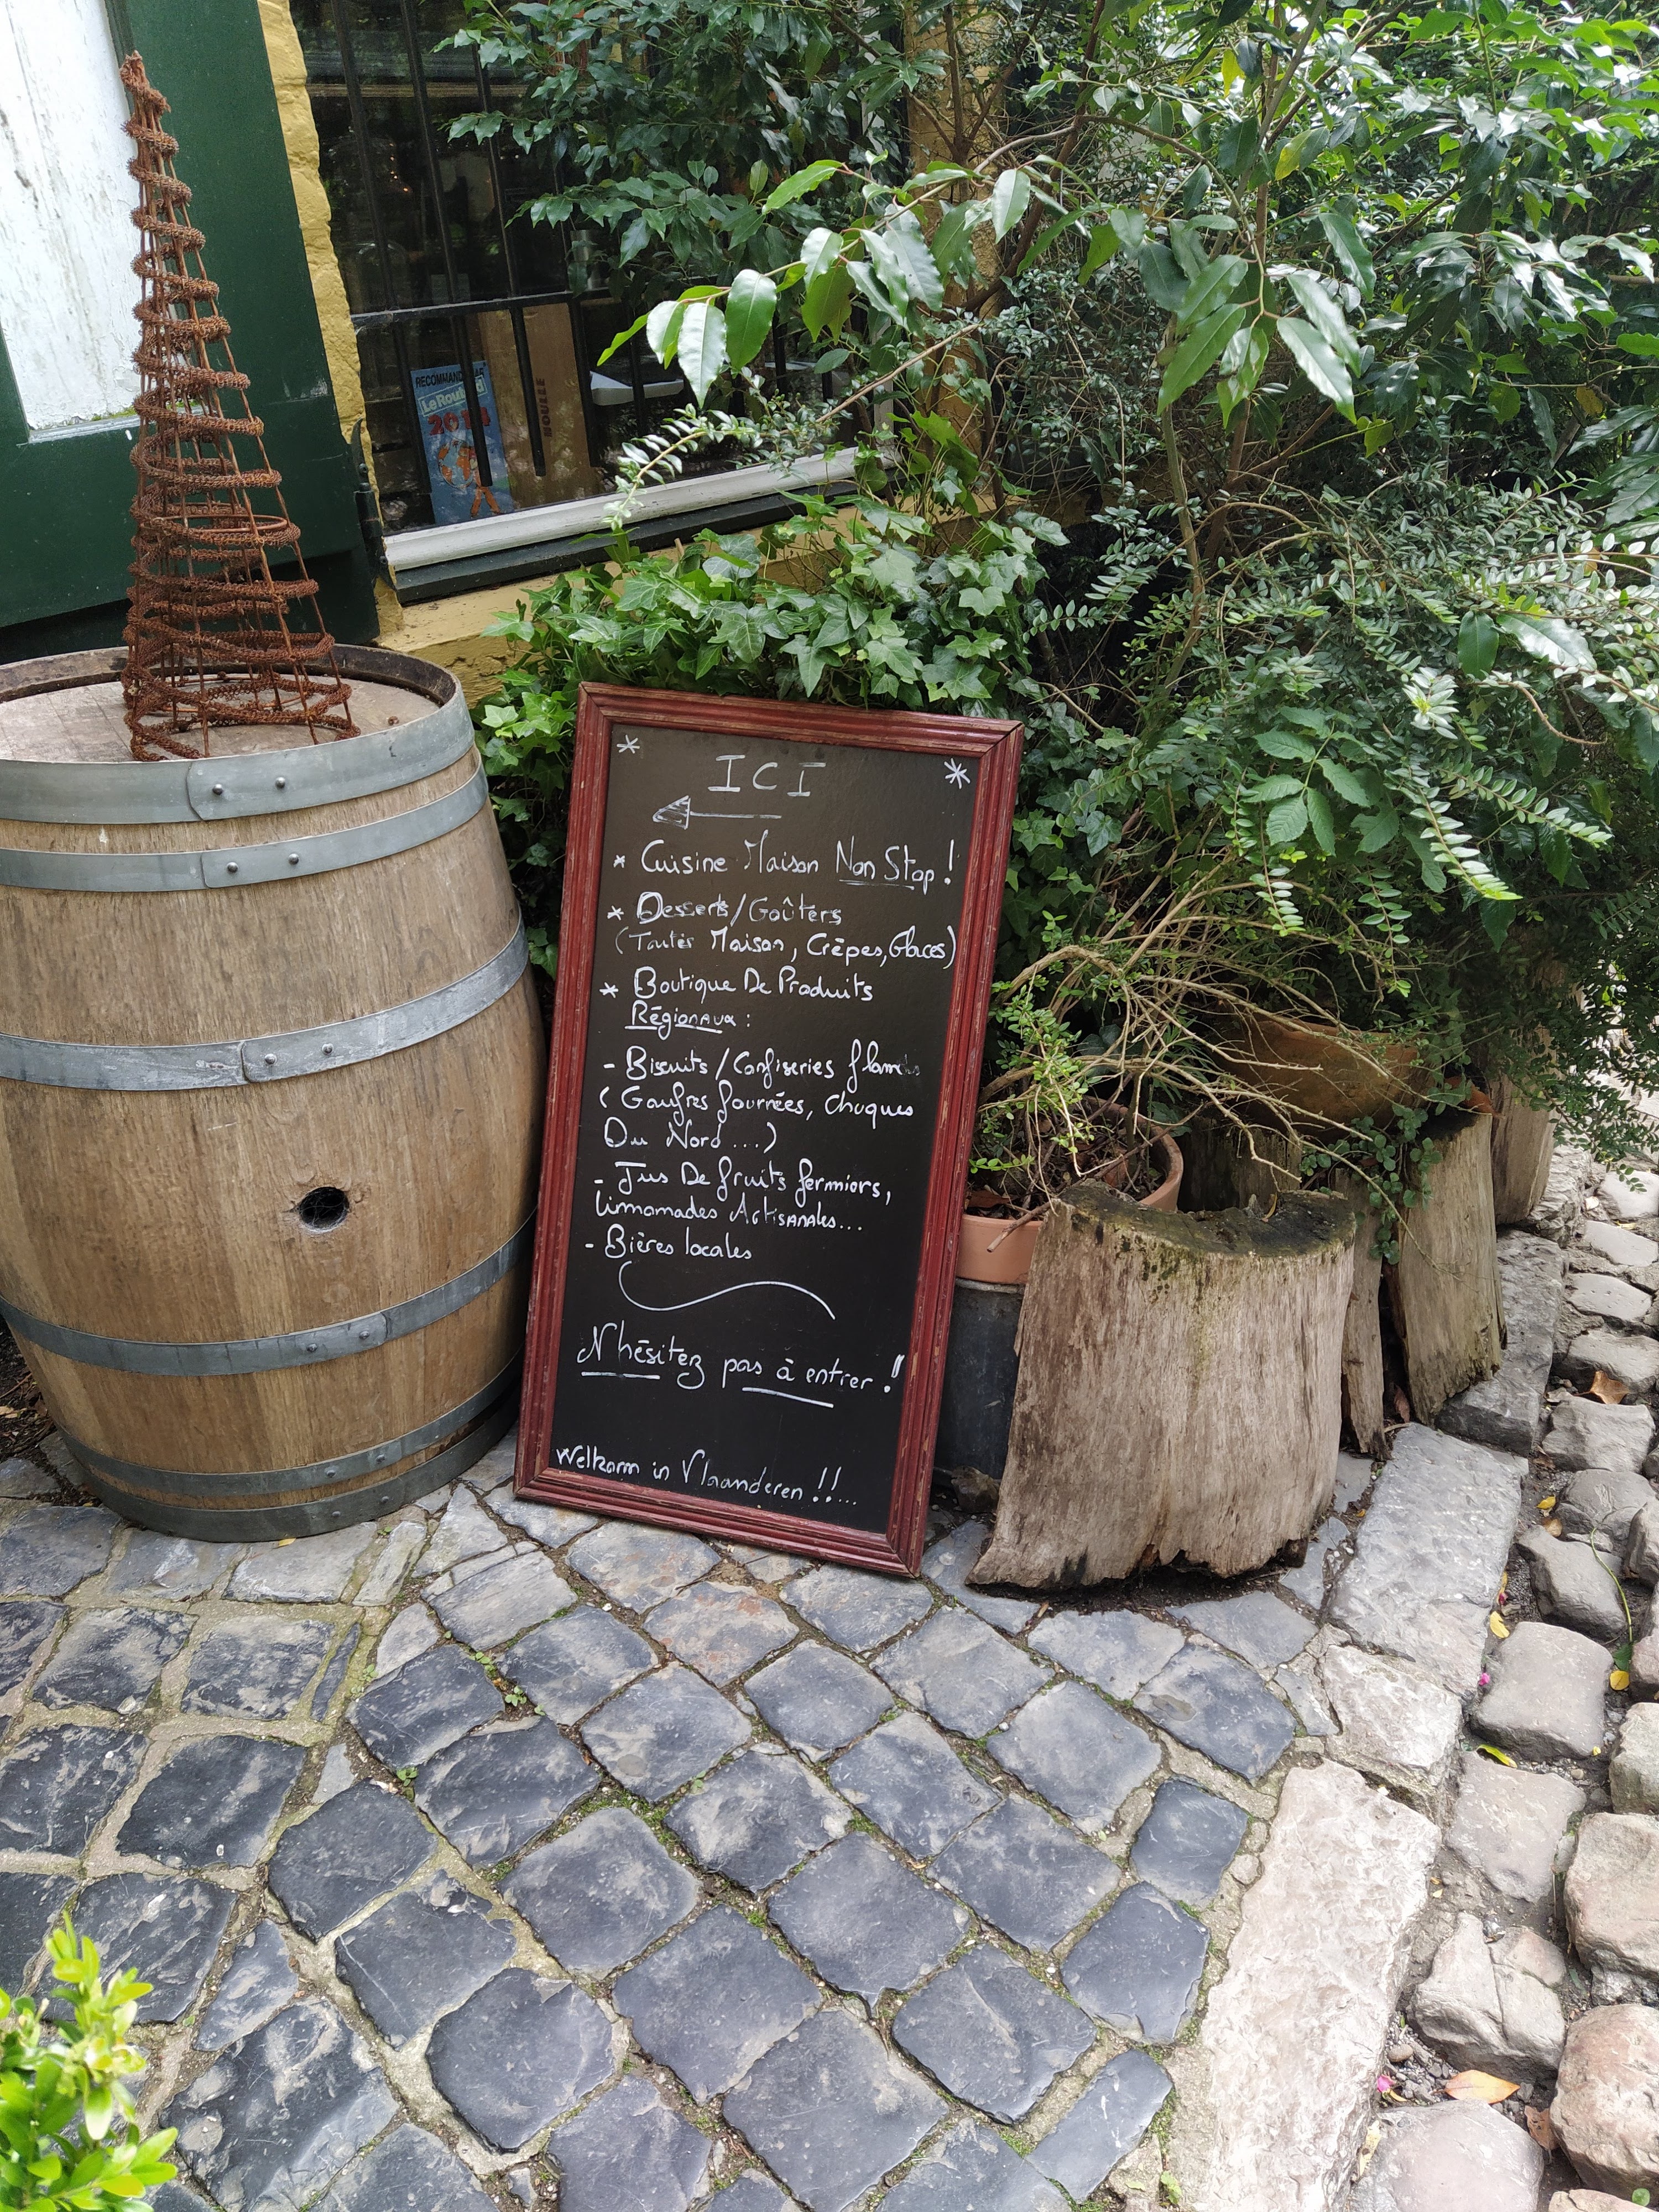 RECOMMANDÉ PAR
Le Routard
2014
* ICI *
* Cuisine Maison Non Stop !
* Desserts/Goûters
(Tartes Maison, Crêpes, Glaces)
* Boutique De Produits
Régionaux :
- Biscuits / Confiseries flamands
( Gaufres fourrées, Chuques
Du Nord ...)
- Jus De fruits fermiers,
Limonades Artisanales...
- Bières locales
N'hésitez pas à entrer !
Welkom in Vlaanderen !!...